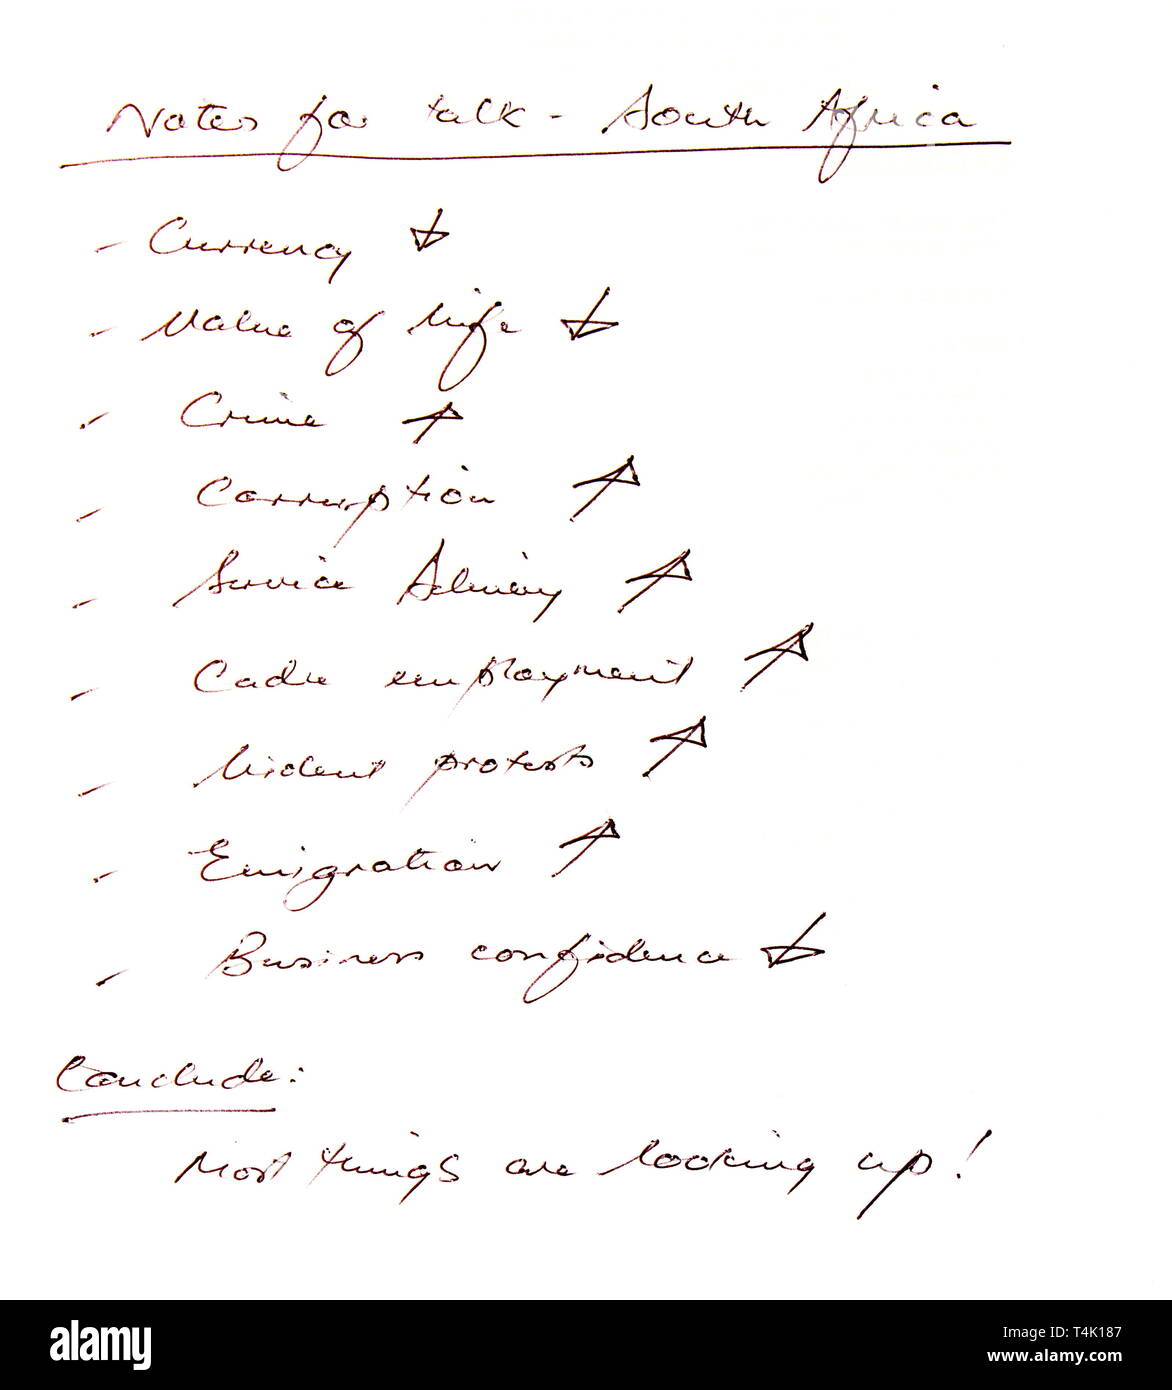 Notes for talk - South Africa
- Currency ↓
- Value of life ↓
- Crime ↑
- Corruption ↑
- Service Delivery ↑
- Cadre employment ↑
- Violent protests ↑
- Emigration ↑
- Business confidence ↓
Conclude:
Most things are looking up!
alamy
Image ID: T4K187
www.alamy.com